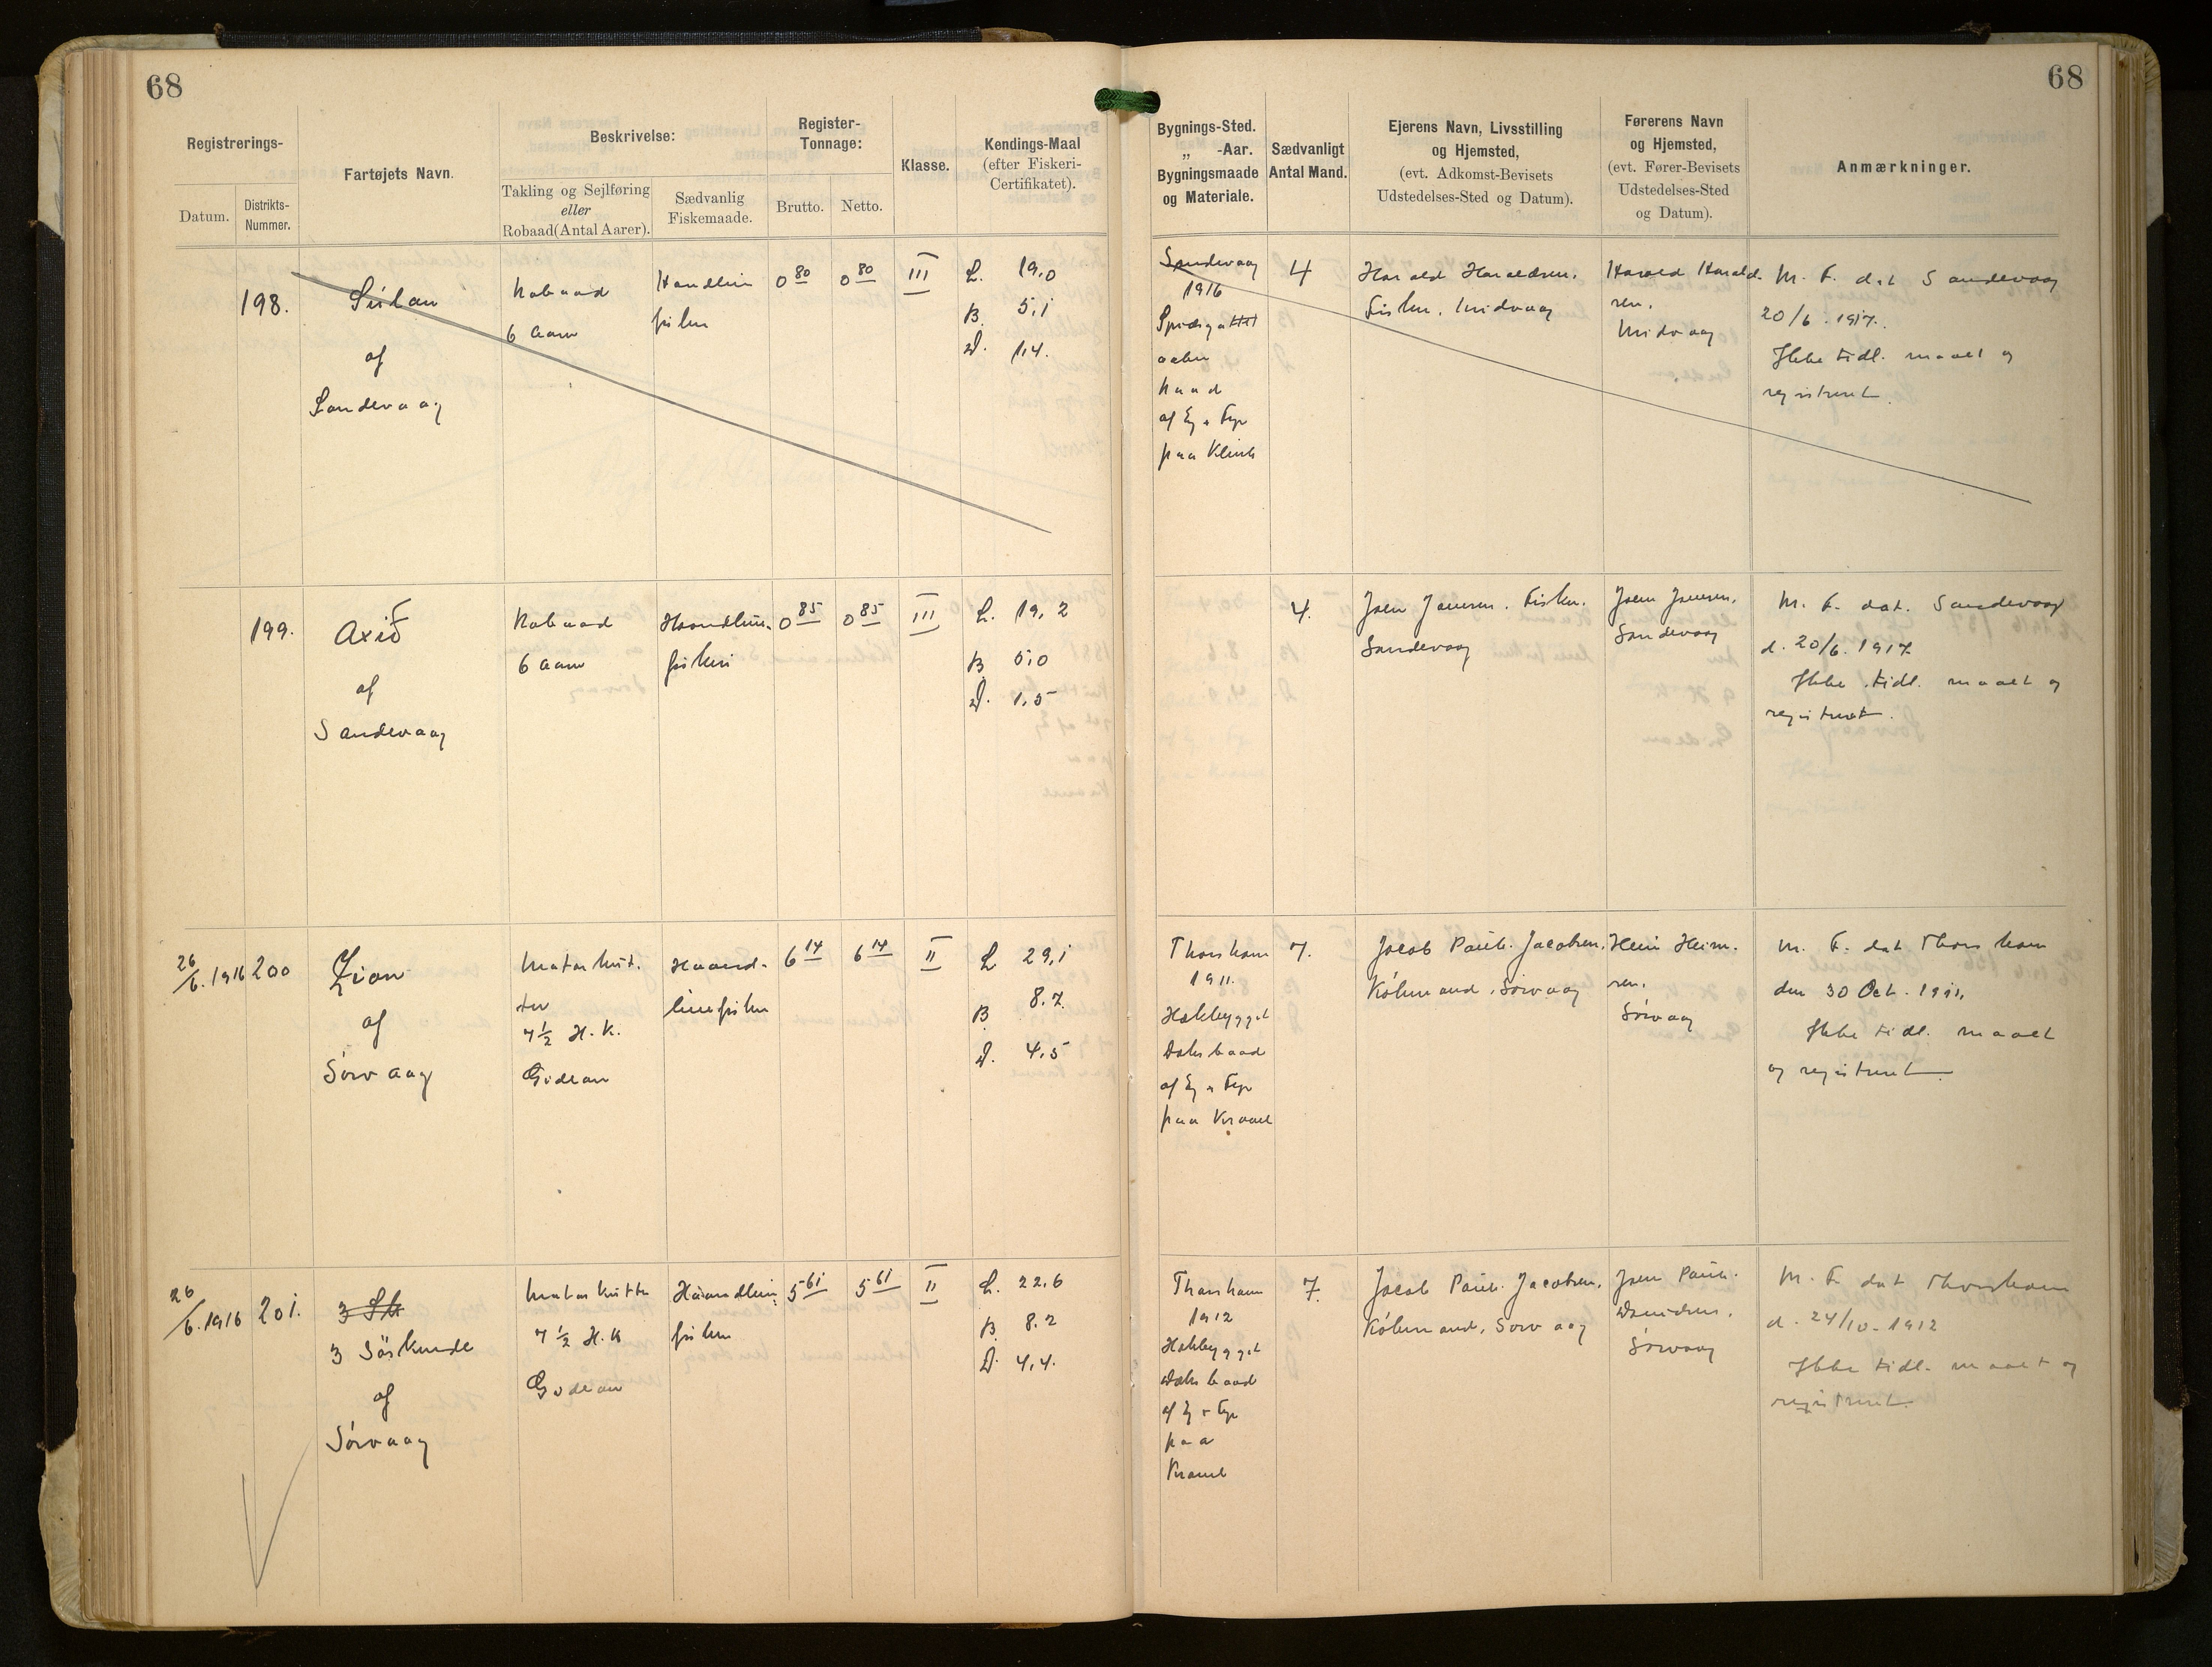 68
68
Registrerings-
Datum.
Distrikts-
Nummer.
Fartøjets Navn.
Beskrivelse:
Takling og Sejlføring
eller
Robaad (Antal Aarer).
Sædvanlig
Fiskemaade.
Register-
Tonnage:
Brutto.
Netto.
Klasse.
Kendings-Maal
(efter Fiskeri-
Certifikatet).
Bygnings-Sted.
„ -Aar.
Bygningsmaade
og Materiale.
Sædvanligt
Antal Mand.
Ejerens Navn, Livsstilling
og Hjemsted,
(evt. Adkomst-Bevisets
Udstedelses-Sted og Datum).
Førerens Navn
og Hjemsted,
(evt. Fører-Bevisets
Udstedelses-Sted
og Datum).
Anmærkninger.
198.
af
Sandevaag
Robaad
6 Aarer
Haandlin
fiskeri
0 80
0 80
III
L. 19,0
B. 5,1
D. 1,4.
Sandevaag
1916
aaben
Baad
af Eg & Fyr
paa Klink
4
Harald Haraldsen.
Fisker. Midvaag
Harald Harald-
sen.
Midvaag
M. F. dat Sandevaag
20/6. 1917.
Ikke tidl. maalt og
registreret.
199.
Axið
af
Sandevaag
Robaad
6 Aarer
Haandlin-
fiskeri
0 85
0 85
III
L. 19,2
B. 5,0
D. 1,5
4.
Joen Joensen. Fisker.
Sandevaag
Joen Joensen.
Sandevaag
M. F. dat. Sandevaag
d. 20/6. 1917
Ikke tidl. maalt og
registreret.
26/6. 1916
200
Zion
af
Sørvaag
Motorkut-
ter
7½ H.K.
Gideon
Haand-
linefiskeri
6 14
6 14
II
L. 29,1
B. 8.7.
D. 4,5
Thorshavn
1911.
Hækbygget
Dæksbaad
af Eg & Fyr
paa Kravel
7.
Jacob Pauli Jacobsen.
Købmand, Sørvaag
Heini Heine-
sen.
Sørvaag
M. F. dat Thorshavn
den 30 Oct. 1911.
Ikke tidl. maalt
og registreret
26/6. 1916
201.
3 Søskende
af
Sørvaag
Motorkutter
7½ H.K
Gideon
Haandlin-
fiskeri
5 61
5 61
II
L. 22,6
B. 8.2
D. 4,4.
Thorshavn
1912
Hækbygget
Dæksbaad
af Eg & Fyr
paa
Kravel
7.
Jacob Pauli Jacobsen.
Købmand, Sørvaag
Joen Pauli
Sørvaag
M. F. dat Thorshavn
d. 24/10-1912
Ikke tidl. maalt og
registreret.